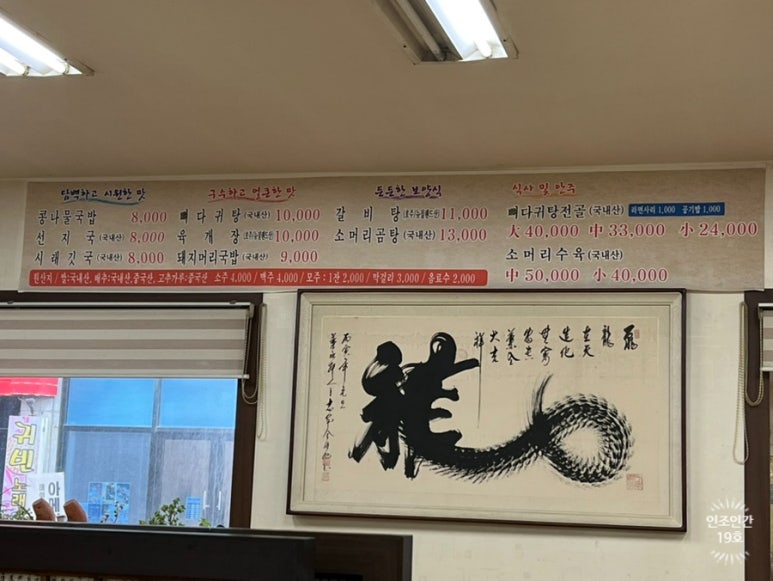 담백하고 시원한 맛
콩나물국밥 8,000
선지국(국내산) 8,000
시래깃국(국내산) 8,000
구수하고 얼큰한 맛
뼈다귀탕(국내산) 10,000
육개장 10,000
돼지머리국밥(국내산) 9,000
든든한 보양식
갈비탕 11,000
소머리곰탕(국내산) 13,000
식사 및 안주
뼈다귀탕전골(국내산) 라면사리 1,000 공기밥 1,000
大 40,000 中 33,000 小 24,000
소머리수육(국내산)
中 50,000 小 40,000
원산지 / 쌀:국내산, 배추:국내산,중국산, 고추가루:중국산 소주 4,000 / 맥주 4,000 / 모주 : 1잔 2,000 / 막걸리 3,000 / 음료수 2,000
龍
在天
造化
無窮
大吉
祥
귀빈노래
인조인간
19호